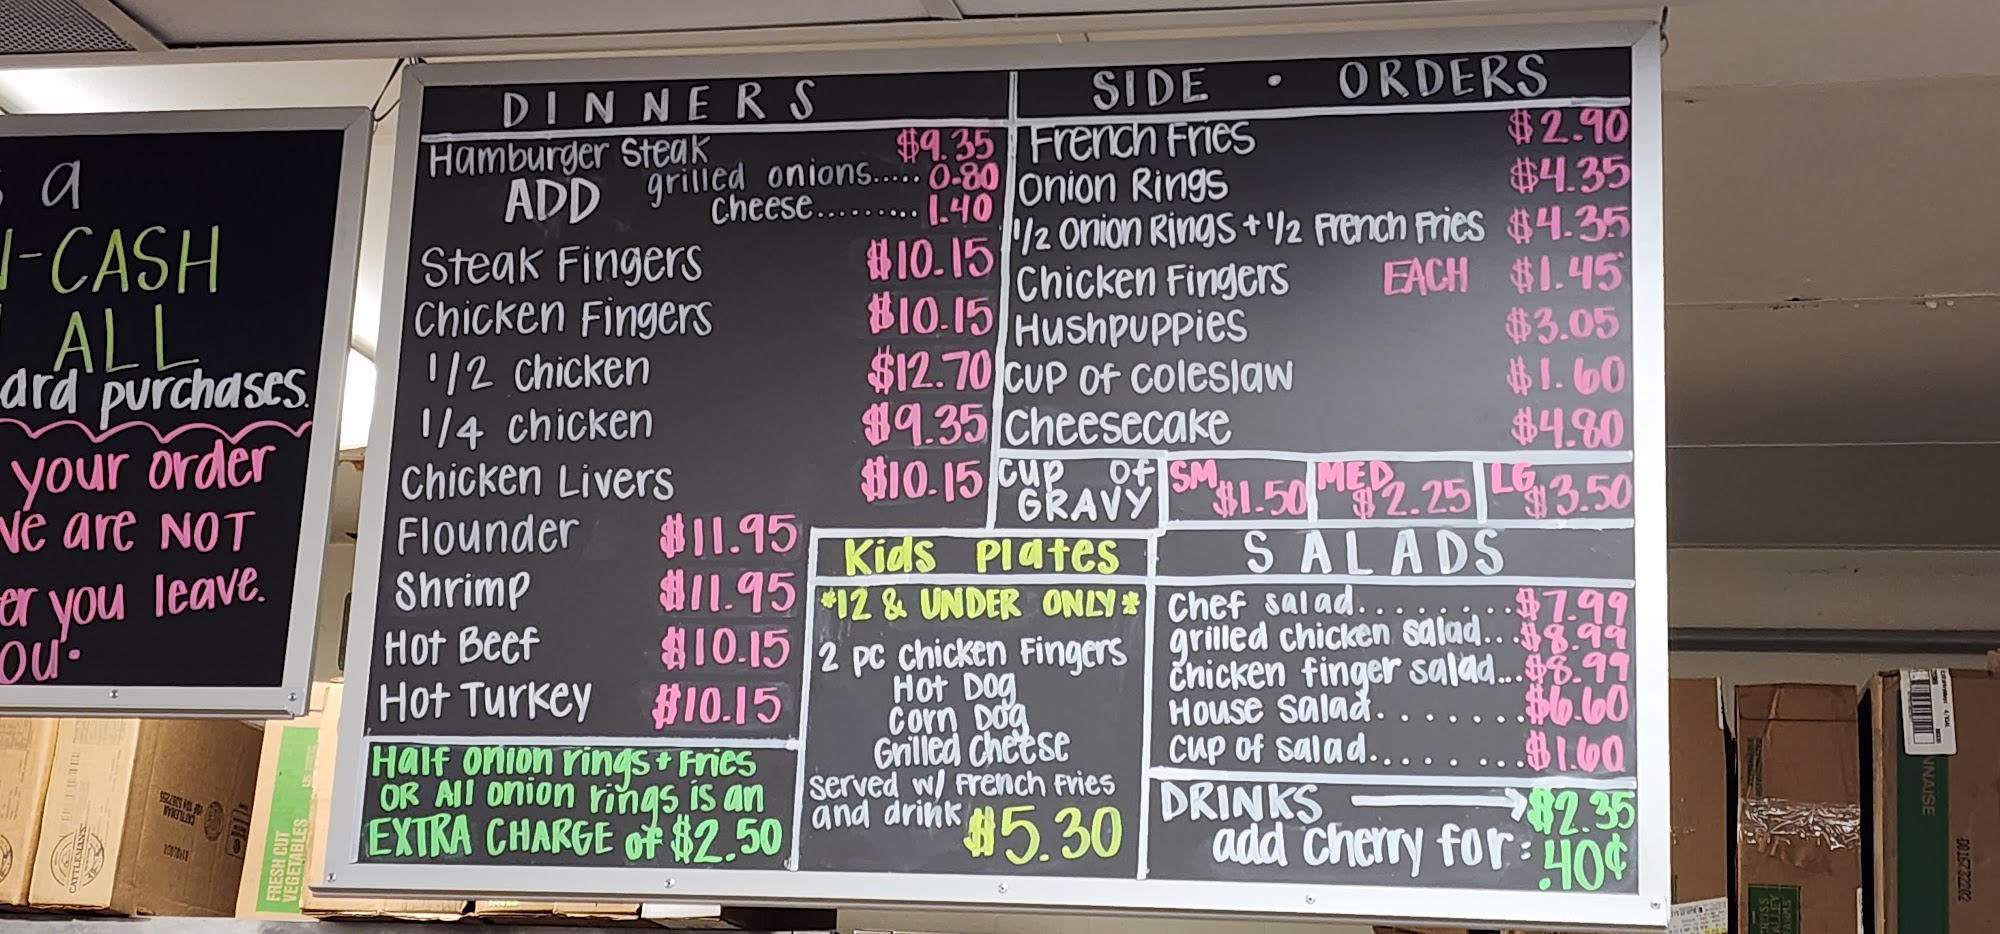 a
-CASH
ALL
ard purchases.
your order
are NOT
you leave.
DINNERS
Hamburger Steak $9.35
ADD grilled onions..... 0.80
cheese......... 1.40
Steak Fingers $10.15
Chicken Fingers $10.15
1/2 chicken $12.70
1/4 chicken $9.35
Chicken Livers $10.15
Flounder $11.95
Shrimp $11.95
Hot Beef $10.15
Hot Turkey $10.15
Half onion rings + Fries
OR All onion rings is an
EXTRA CHARGE of $2.50
SIDE • ORDERS
French Fries $2.90
Onion Rings $4.35
1/2 Onion Rings + 1/2 French Fries $4.35
Chicken Fingers EACH $1.45
Hushpuppies $3.05
Cup of coleslaw $1.60
Cheesecake $4.80
Cup of GRAVY SM $1.50 MED $2.25 LG $3.50
Kids Plates
*12 & UNDER ONLY*
2 pc chicken Fingers
Hot Dog
Corn Dog
Grilled Cheese
served w/ French Fries
and drink $5.30
SALADS
Chef salad........$7.99
grilled chicken salad...$8.99
chicken finger salad...$8.99
House Salad.......$6.60
Cup of salad.......$1.60
DRINKS → $2.35
add cherry for: .40¢
CATTLEMEN'S
FRESH CUT
VEGETABLES